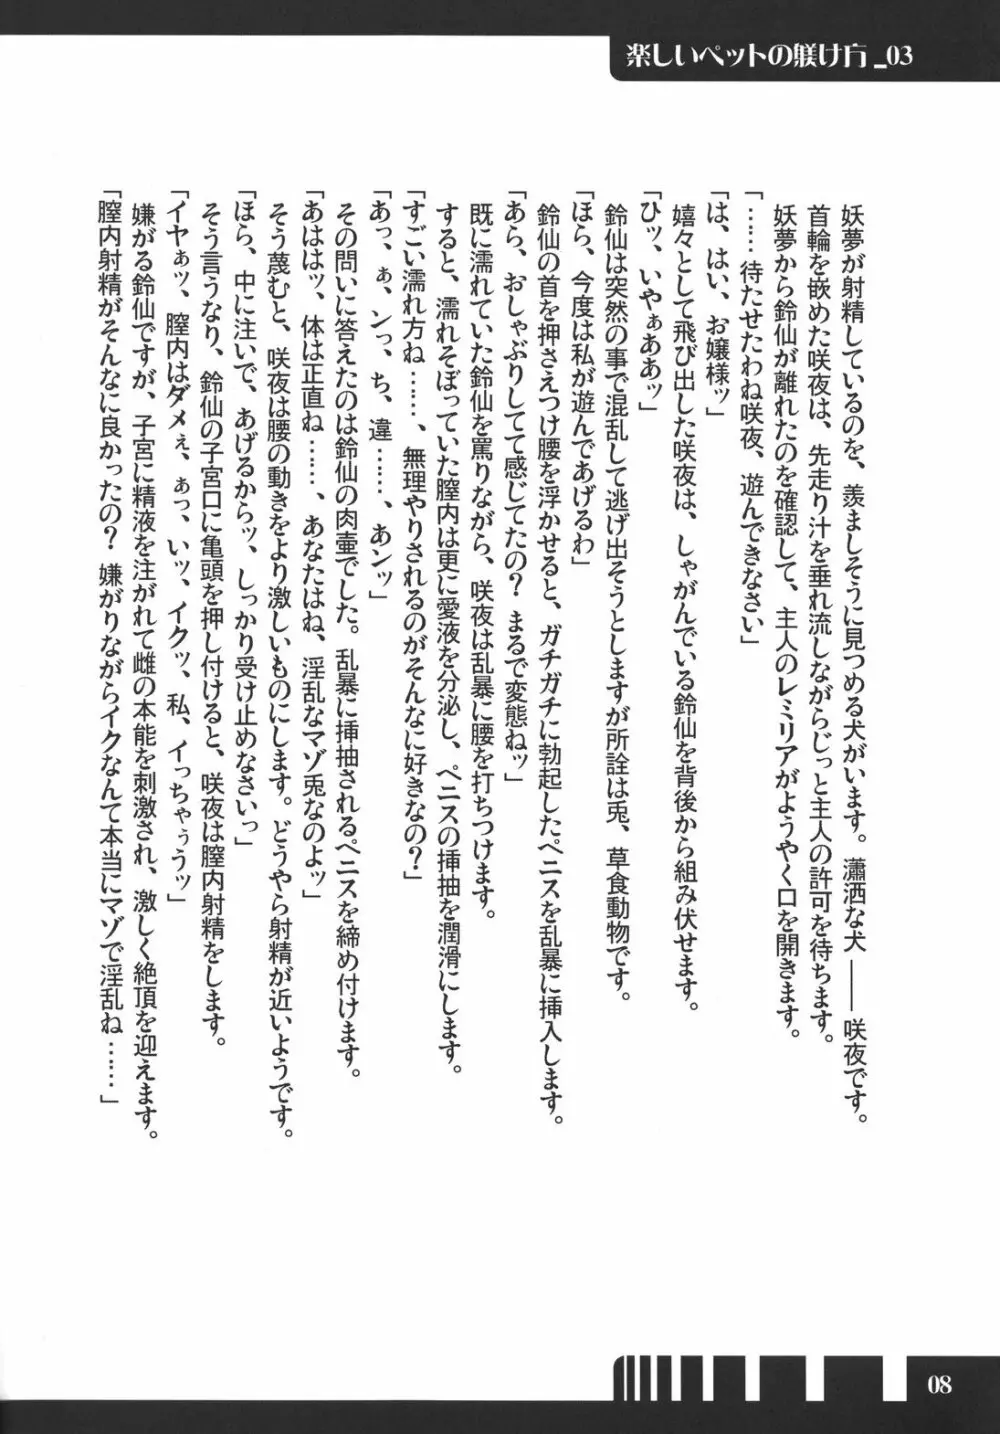 楽しいペットの躾け方_03
妖夢が射精しているのを、羨ましそうに見つめる犬がいます。瀟洒な犬――咲夜です。
首輪を嵌めた咲夜は、先走り汁を垂れ流しながらじっと主人の許可を待ちます。
妖夢から鈴仙が離れたのを確認して、主人のレミリアがようやく口を開きます。
「……待たせたわね咲夜、遊んできなさい」
「は、はい、お嬢様ッ」
嬉々として飛び出した咲夜は、しゃがんでいる鈴仙を背後から組み伏せます。
「ひッ、いやぁああッ」
鈴仙は突然の事で混乱して逃げ出そうとしますが所詮は兎、草食動物です。
「ほら、今度は私が遊んであげるわ」
鈴仙の首を押さえつけ腰を浮かせると、ガチガチに勃起したペニスを乱暴に挿入します。
「あら、おしゃぶりしてて感じてたの？ まるで変態ねッ」
既に濡れていた鈴仙を罵りながら、咲夜は乱暴に腰を打ちつけます。
すると、濡れそぼっていた膣内は更に愛液を分泌し、ペニスの挿抽を潤滑にします。
「すごい濡れ方ね……、無理やりされるのがそんなに好きなの？」
「あっ、ぁ、ンっ、ち、違……、あンッ」
その問いに答えたのは鈴仙の肉壷でした。乱暴に挿抽されるペニスを締め付けます。
「あははッ、体は正直ね……、あなたはね、淫乱なマゾ兎なのよッ」
そう蔑むと、咲夜は腰の動きをより激しいものにします。どうやら射精が近いようです。
「ほら、中に注いで、あげるからッ、しっかり受け止めなさいっ」
そう言うなり、鈴仙の子宮口に亀頭を押し付けると、咲夜は膣内射精をします。
「イヤぁッ、膣内はダメぇ、ぁっ、いッ、イクッ、私、イっちゃぅうッ」
嫌がる鈴仙ですが、子宮に精液を注がれて雌の本能を刺激され、激しく絶頂を迎えます。
「膣内射精がそんなに良かったの？ 嫌がりながらイクなんて本当にマゾで淫乱ね……」
08